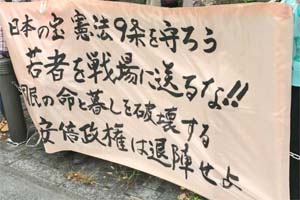 日本の宝 憲法9条を守ろう
若者を戦場に送るな!!
国民の命と暮しを破壊する
安倍政権は退陣せよ